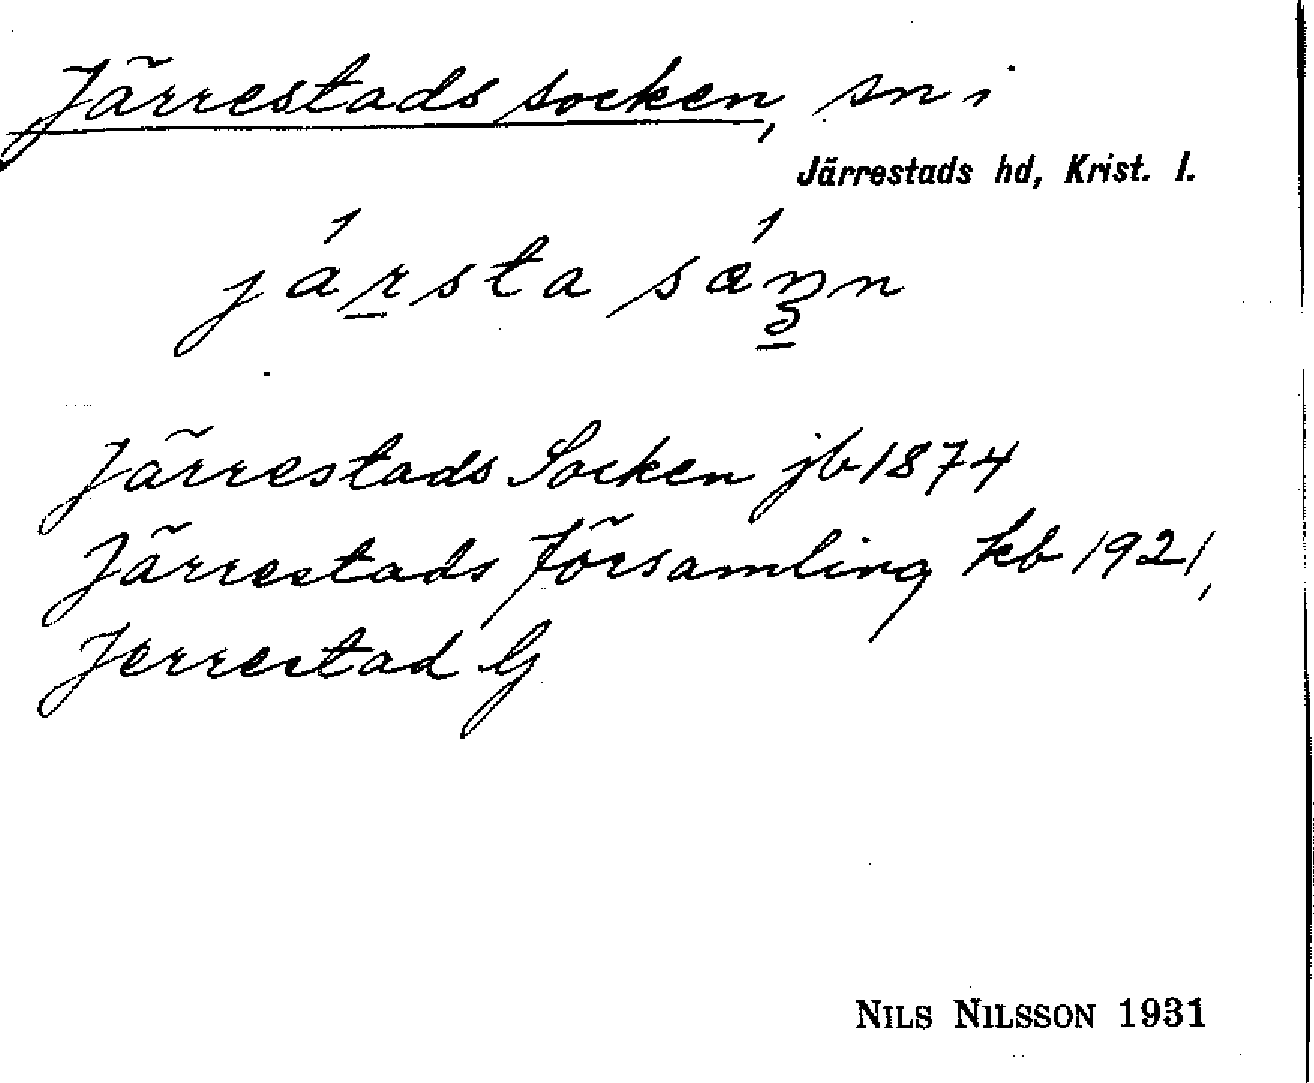 Järrestads socken, sn i
Järrestads hd, Krist. l.
jársta
Järrestads Socken jb 1874
Järrestads församling kb 1921,
Jerrestad G
NILS NILSSON 1931